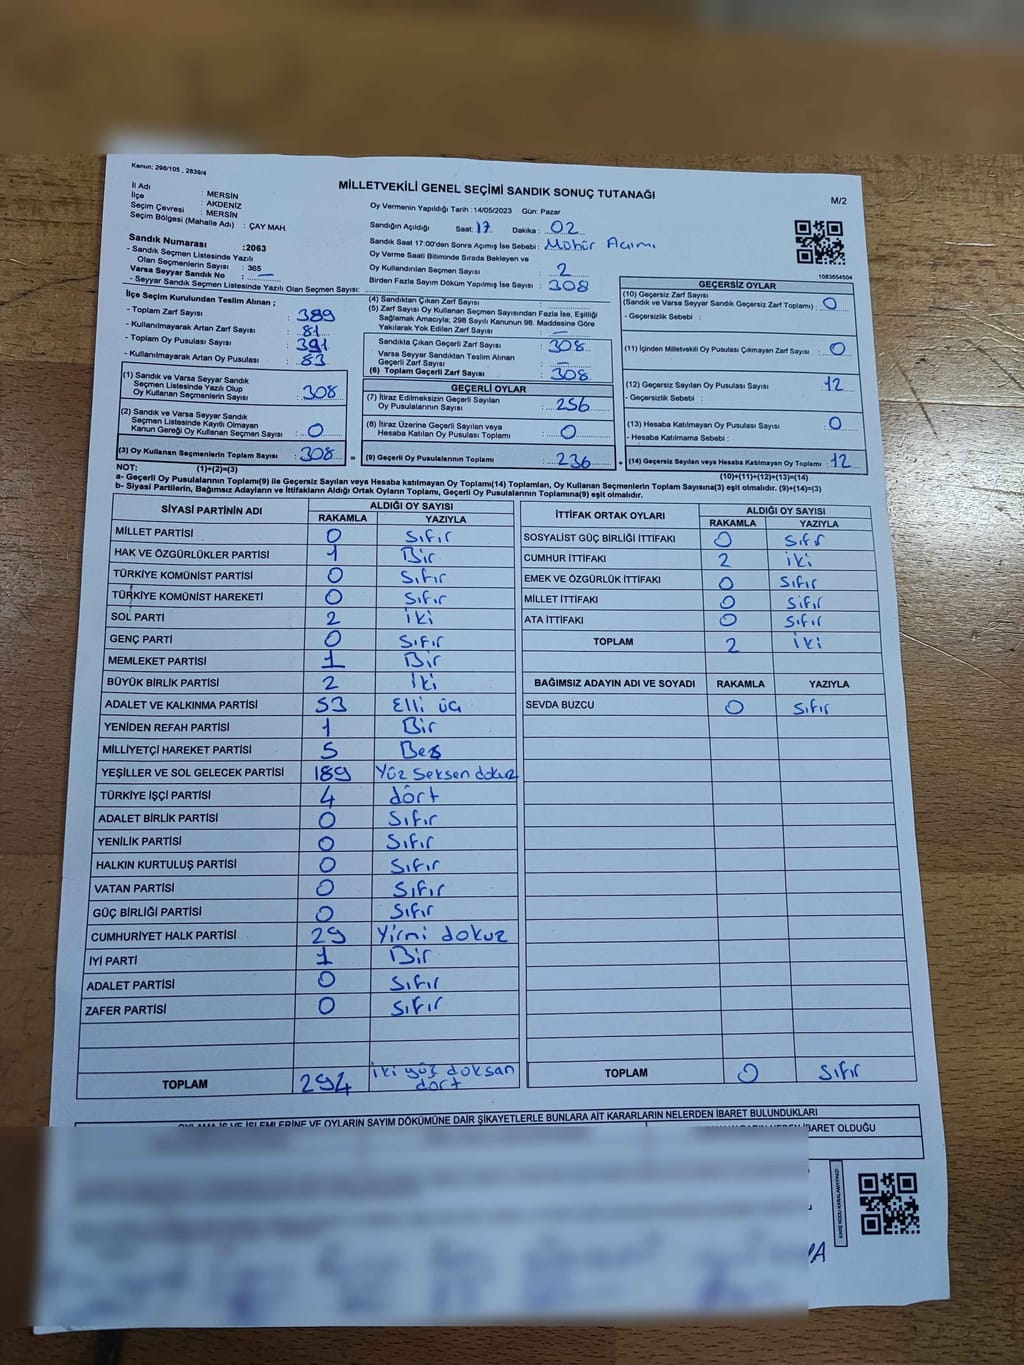 Kanun: 298/105 , 2839/4
MİLLETVEKİLİ GENEL SEÇİMİ SANDIK SONUÇ TUTANAĞI
M/2
İl Adı : MERSİN
İlçe : AKDENİZ
Seçim Çevresi : MERSİN
Seçim Bölgesi (Mahalle Adı) : ÇAY MAH.
Sandık Numarası :2063
- Sandık Seçmen Listesinde Yazılı
Olan Seçmenlerin Sayısı : 365
Varsa Seyyar Sandık No : —
- Seyyar Sandık Seçmen Listesinde Yazılı Olan Seçmen Sayısı:
Oy Vermenin Yapıldığı Tarih :14/05/2023 Gün: Pazar
Sandığın Açıldığı Saat: 17 Dakika : 02
Sandık Saat 17:00'den Sonra Açımış İse Sebebi : Mohür Açımı
Oy Verme Saati Bitiminde Sırada Bekleyen ve
Oy Kullandırılan Seçmen Sayısı : 2
Birden Fazla Sayım Döküm Yapılmış İse Sayısı : 308
1083654504
İlçe Seçim Kurulundan Teslim Alınan ;
- Toplam Zarf Sayısı : 389
- Kullanılmayarak Artan Zarf Sayısı : 81
- Toplam Oy Pusulası Sayısı : 391
- Kullanılmayarak Artan Oy Pusulası : 83
(1) Sandık ve Varsa Seyyar Sandık
Seçmen Listesinde Yazılı Olup
Oy Kullanan Seçmenlerin Sayısı : 308
(2) Sandık ve Varsa Seyyar Sandık
Seçmen Listesinde Kayıtlı Olmayan
Kanun Gereği Oy Kullanan Seçmen Sayısı : 0
(3) Oy Kullanan Seçmenlerin Toplam Sayısı : 308
(4) Sandıktan Çıkan Zarf Sayısı :
(5) Zarf Sayısı Oy Kullanan Seçmen Sayısından Fazla İse, Eşitliği
Sağlamak Amacıyla; 298 Sayılı Kanunun 98. Maddesine Göre
Yakılarak Yok Edilen Zarf Sayısı : —
Sandıkta Çıkan Geçerli Zarf Sayısı : 308
Varsa Seyyar Sandıktan Teslim Alınan
Geçerli Zarf Sayısı : —
(6) Toplam Geçerli Zarf Sayısı : 308
GEÇERLİ OYLAR
(7) İtiraz Edilmeksizin Geçerli Sayılan
Oy Pusulalarının Sayısı : 256
(8) İtiraz Üzerine Geçerli Sayılan veya
Hesaba Katılan Oy Pusulası Toplamı : 0
= (9) Geçerli Oy Pusulalarının Toplamı : 236
GEÇERSİZ OYLAR
(10) Geçersiz Zarf Sayısı
(Sandık ve Varsa Seyyar Sandık Geçersiz Zarf Toplamı) : 0
- Geçersizlik Sebebi :
(11) İçinden Milletvekili Oy Pusulası Çıkmayan Zarf Sayısı : 0
(12) Geçersiz Sayılan Oy Pusulası Sayısı : 12
- Geçersizlik Sebebi :
(13) Hesaba Katılmayan Oy Pusulası Sayısı : 0
- Hesaba Katılmama Sebebi :
+ (14) Geçersiz Sayılan veya Hesaba Katılmayan Oy Toplamı : 12
NOT: (1)+(2)=(3) (10)+(11)+(12)+(13)=(14)
a- Geçerli Oy Pusulalarının Toplamı(9) ile Geçersiz Sayılan veya Hesaba katılmayan Oy Toplamı(14) Toplamları, Oy Kullanan Seçmenlerin Toplam Sayısına(3) eşit olmalıdır. (9)+(14)=(3)
b- Siyasi Partilerin, Bağımsız Adayların ve İttifakların Aldığı Ortak Oyların Toplamı, Geçerli Oy Pusulalarının Toplamına(9) eşit olmalıdır.
SİYASİ PARTİNİN ADI ALDIĞI OY SAYISI
RAKAMLA YAZIYLA
MİLLET PARTİSİ 0 Sıfır
HAK VE ÖZGÜRLÜKLER PARTİSİ 1 Bir
TÜRKİYE KOMÜNİST PARTİSİ 0 Sıfır
TÜRKİYE KOMÜNİST HAREKETİ 0 Sıfır
SOL PARTİ 2 iki
GENÇ PARTİ 0 Sıfır
MEMLEKET PARTİSİ 1 Bir
BÜYÜK BİRLİK PARTİSİ 2 İki
ADALET VE KALKINMA PARTİSİ 53 Elli üç
YENİDEN REFAH PARTİSİ 1 Bir
MİLLİYETÇİ HAREKET PARTİSİ 5 Beş
YEŞİLLER VE SOL GELECEK PARTİSİ 189 Yüz Seksen dokuz
TÜRKİYE İŞÇİ PARTİSİ 4 dört
ADALET BİRLİK PARTİSİ 0 Sıfır
YENİLİK PARTİSİ 0 Sıfır
HALKIN KURTULUŞ PARTİSİ 0 Sıfır
VATAN PARTİSİ 0 Sıfır
GÜÇ BİRLİĞİ PARTİSİ 0 Sıfır
CUMHURİYET HALK PARTİSİ 29 Yirmi dokuz
İYİ PARTİ 1 Bir
ADALET PARTİSİ 0 Sıfır
ZAFER PARTİSİ 0 Sıfır
TOPLAM 294 iki yüz doksan
dört
İTTİFAK ORTAK OYLARI ALDIĞI OY SAYISI
RAKAMLA YAZIYLA
SOSYALİST GÜÇ BİRLİĞİ İTTİFAKI 0 Sıfır
CUMHUR İTTİFAKI 2 iki
EMEK VE ÖZGÜRLÜK İTTİFAKI 0 Sıfır
MİLLET İTTİFAKI 0 Sıfır
ATA İTTİFAKI 0 Sıfır
TOPLAM 2 iki
BAĞIMSIZ ADAYIN ADI VE SOYADI RAKAMLA YAZIYLA
SEVDA BUZCU 0 Sıfır
TOPLAM 0 Sıfır
OYLAMA İŞ VE İŞLEMLERİNE VE OYLARIN SAYIM DÖKÜMÜNE DAİR ŞİKAYETLERLE BUNLARA AİT KARARLARIN NELERDEN İBARET BULUNDUKLARI
İBARET OLDUĞU
KARE KODU KARALAMAYINIZ!